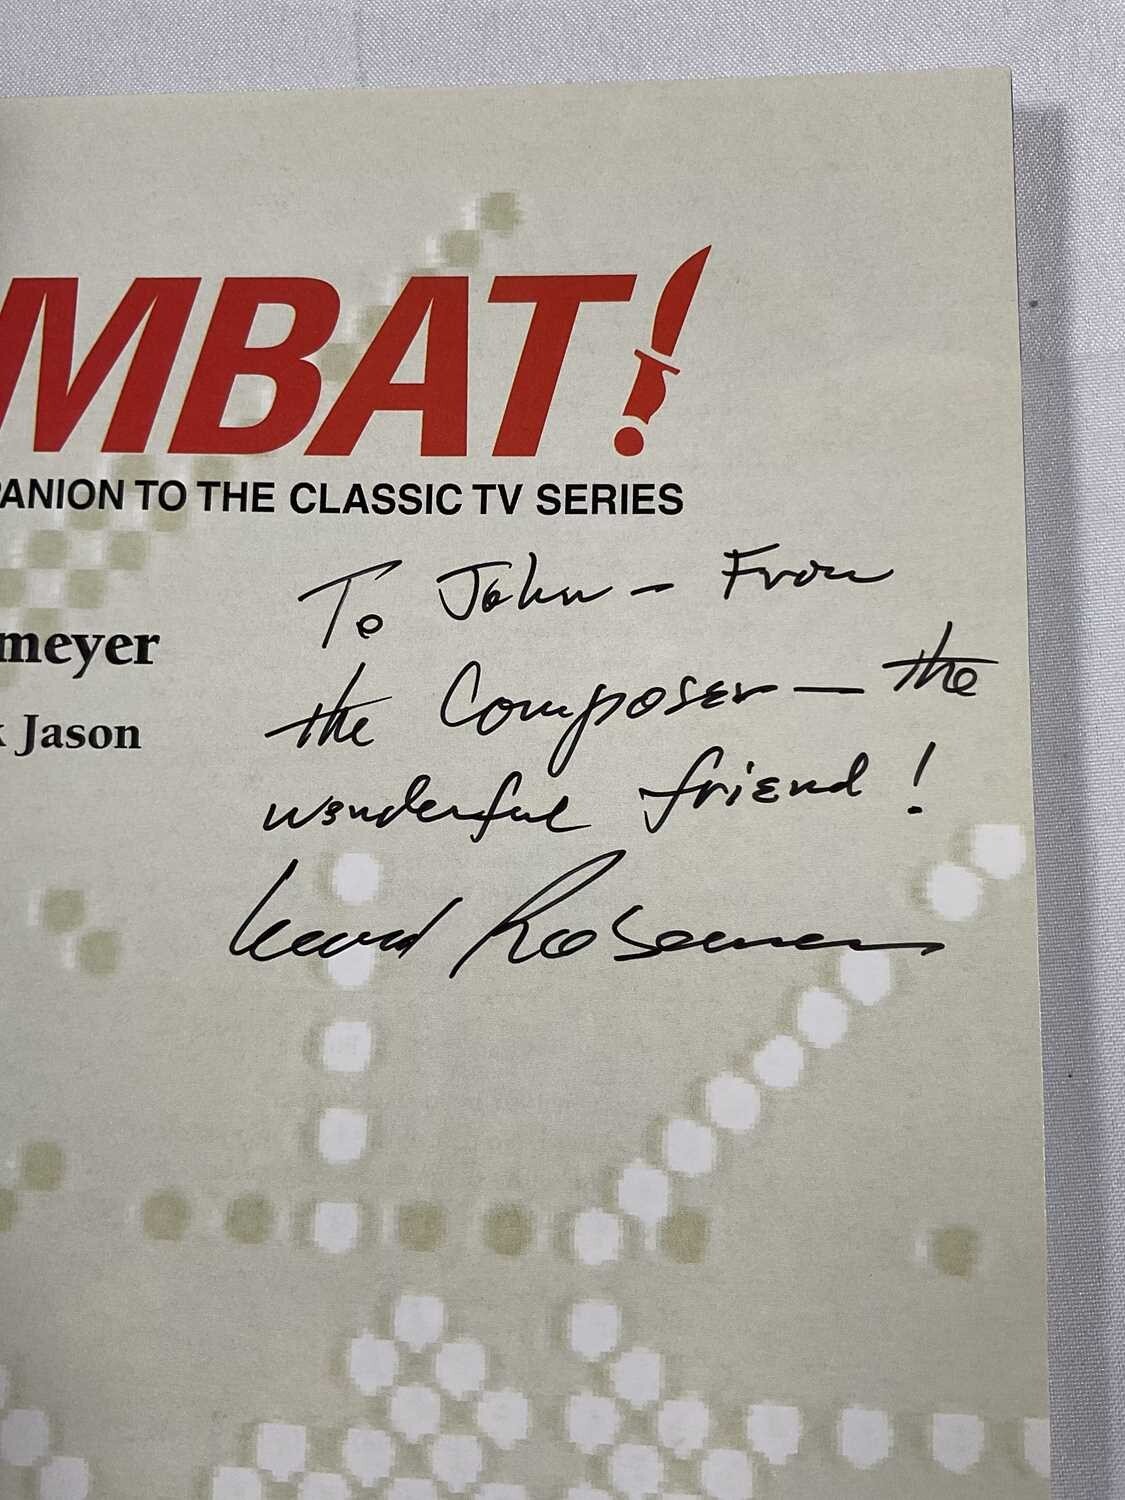 MBAT!
PANION TO THE CLASSIC TV SERIES
meyer
k Jason
To John – From
the Composer — the
wonderful friend!
Leonard Rosenman